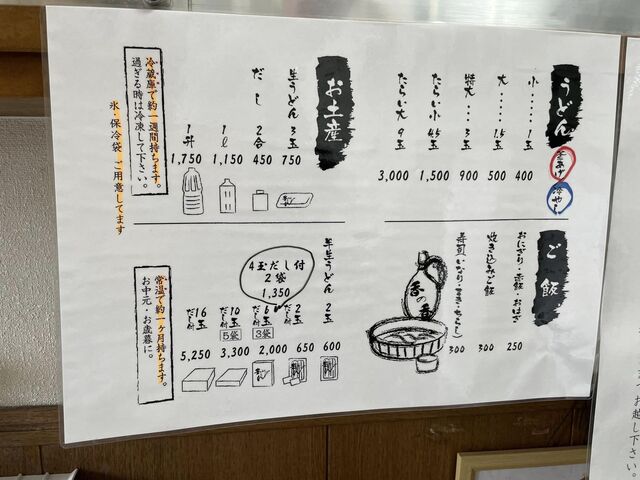 うどん
釜あげ
冷やし
小‥‥‥1玉 400
大‥‥‥1.5玉 500
特大‥‥3玉 900
たらい小 4.5玉 1,500
たらい大 9玉 3,000
お土産
生うどん 3玉 750
だし 2合 450
1ℓ 1,150
1升 1,750
冷蔵庫で約一週間持ちます。
過ぎる時は冷凍して下さい。
氷・保冷袋、ご用意してます
ご飯
おにぎり・赤飯・おはぎ 250
炊き込みご飯 300
寿司(いなり・まき・ちらし) 300
香の香
半生うどん 2玉 600
2玉 だし付 650
6玉 だし付 3袋 2,000
10玉 だし付 5袋 3,300
16玉 だし付 5,250
4玉だし付
2袋
1,350
常温で約一ヶ月持ちます。
お中元・お歳暮に。
お越し下さい。